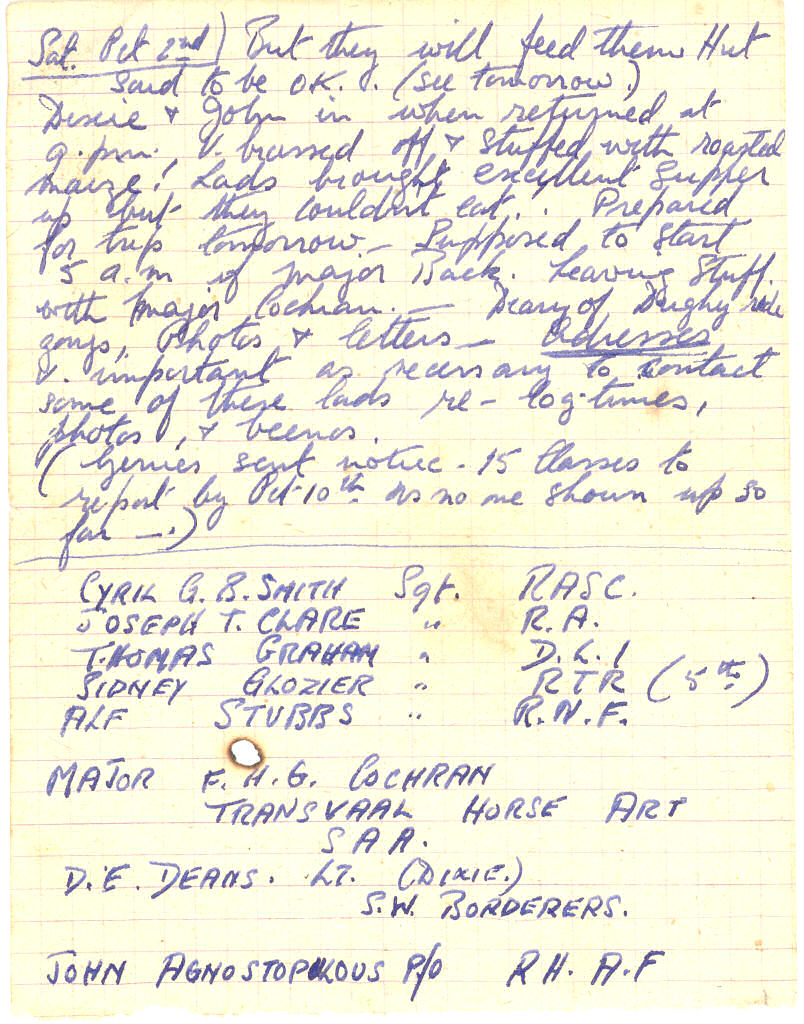 Sat. Oct 2nd) But they will feed them Hut
said to be OK. (see tomorrow.)
Dixie & John in when returned at
9.pm. V. brassed off & stuffed with roasted
maize! Lads brought excellent supper
up but they couldn't eat.. Prepared
for trip tomorrow - Supposed to start
5 a.m if major Back. Leaving stuff
with Major Cochran. - Diary of Dughy ride
gongs, Photos & letters - Adresses
V. important as necessary to contact
some of these lads re- log-times,
photos, &
(Gerries sent notice - 15 Classes to
report by Oct 10th as no one shown up so
far -.)
CYRIL G. B. SMITH Sgt. RASC.
JOSEPH T. CLARE " R.A.
THOMAS GRAHAM " D.L.I
SIDNEY GLOZIER " RTR (5th)
ALF STUBBS " R.N.F.
MAJOR F.H.G. COCHRAN
TRANSVAAL HORSE ART
SAA.
D.E. DEANS. LT. (DIXIE.)
S.W. BORDERERS.
JOHN AGNOSTOPOULOUS P/O RH.A.F